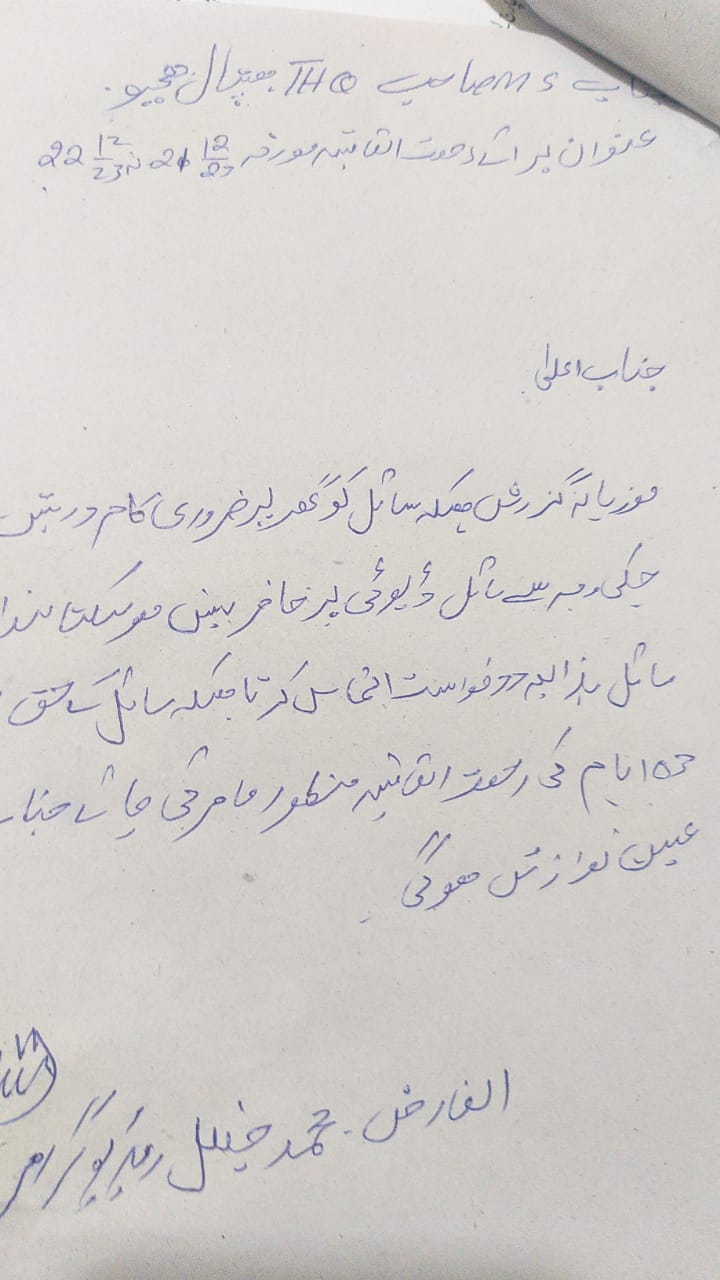 جناب MS صاحب THQ ہسپتال ھجیرہ
عنوان برائے رخصت اتفاقیہ مورخہ 21 12/23 تا 22 12/23
جناب اعلیٰ
مودبانہ گزارش ھیکہ سائل کو گھر پر ضروری کام درپیش
جسکی وجہ سے سائل ڈیوٹی پر حاضر نہیں ھوسکتا لہذا
سائل بذریعہ درخواست التماس کرتا ھیکہ سائل کے حق
ایام کی رخصت اتفاقیہ منظور فرمائی جائے جناب
عین نوازش ھوگی
العارض۔ محمد ریڈیوگرافر